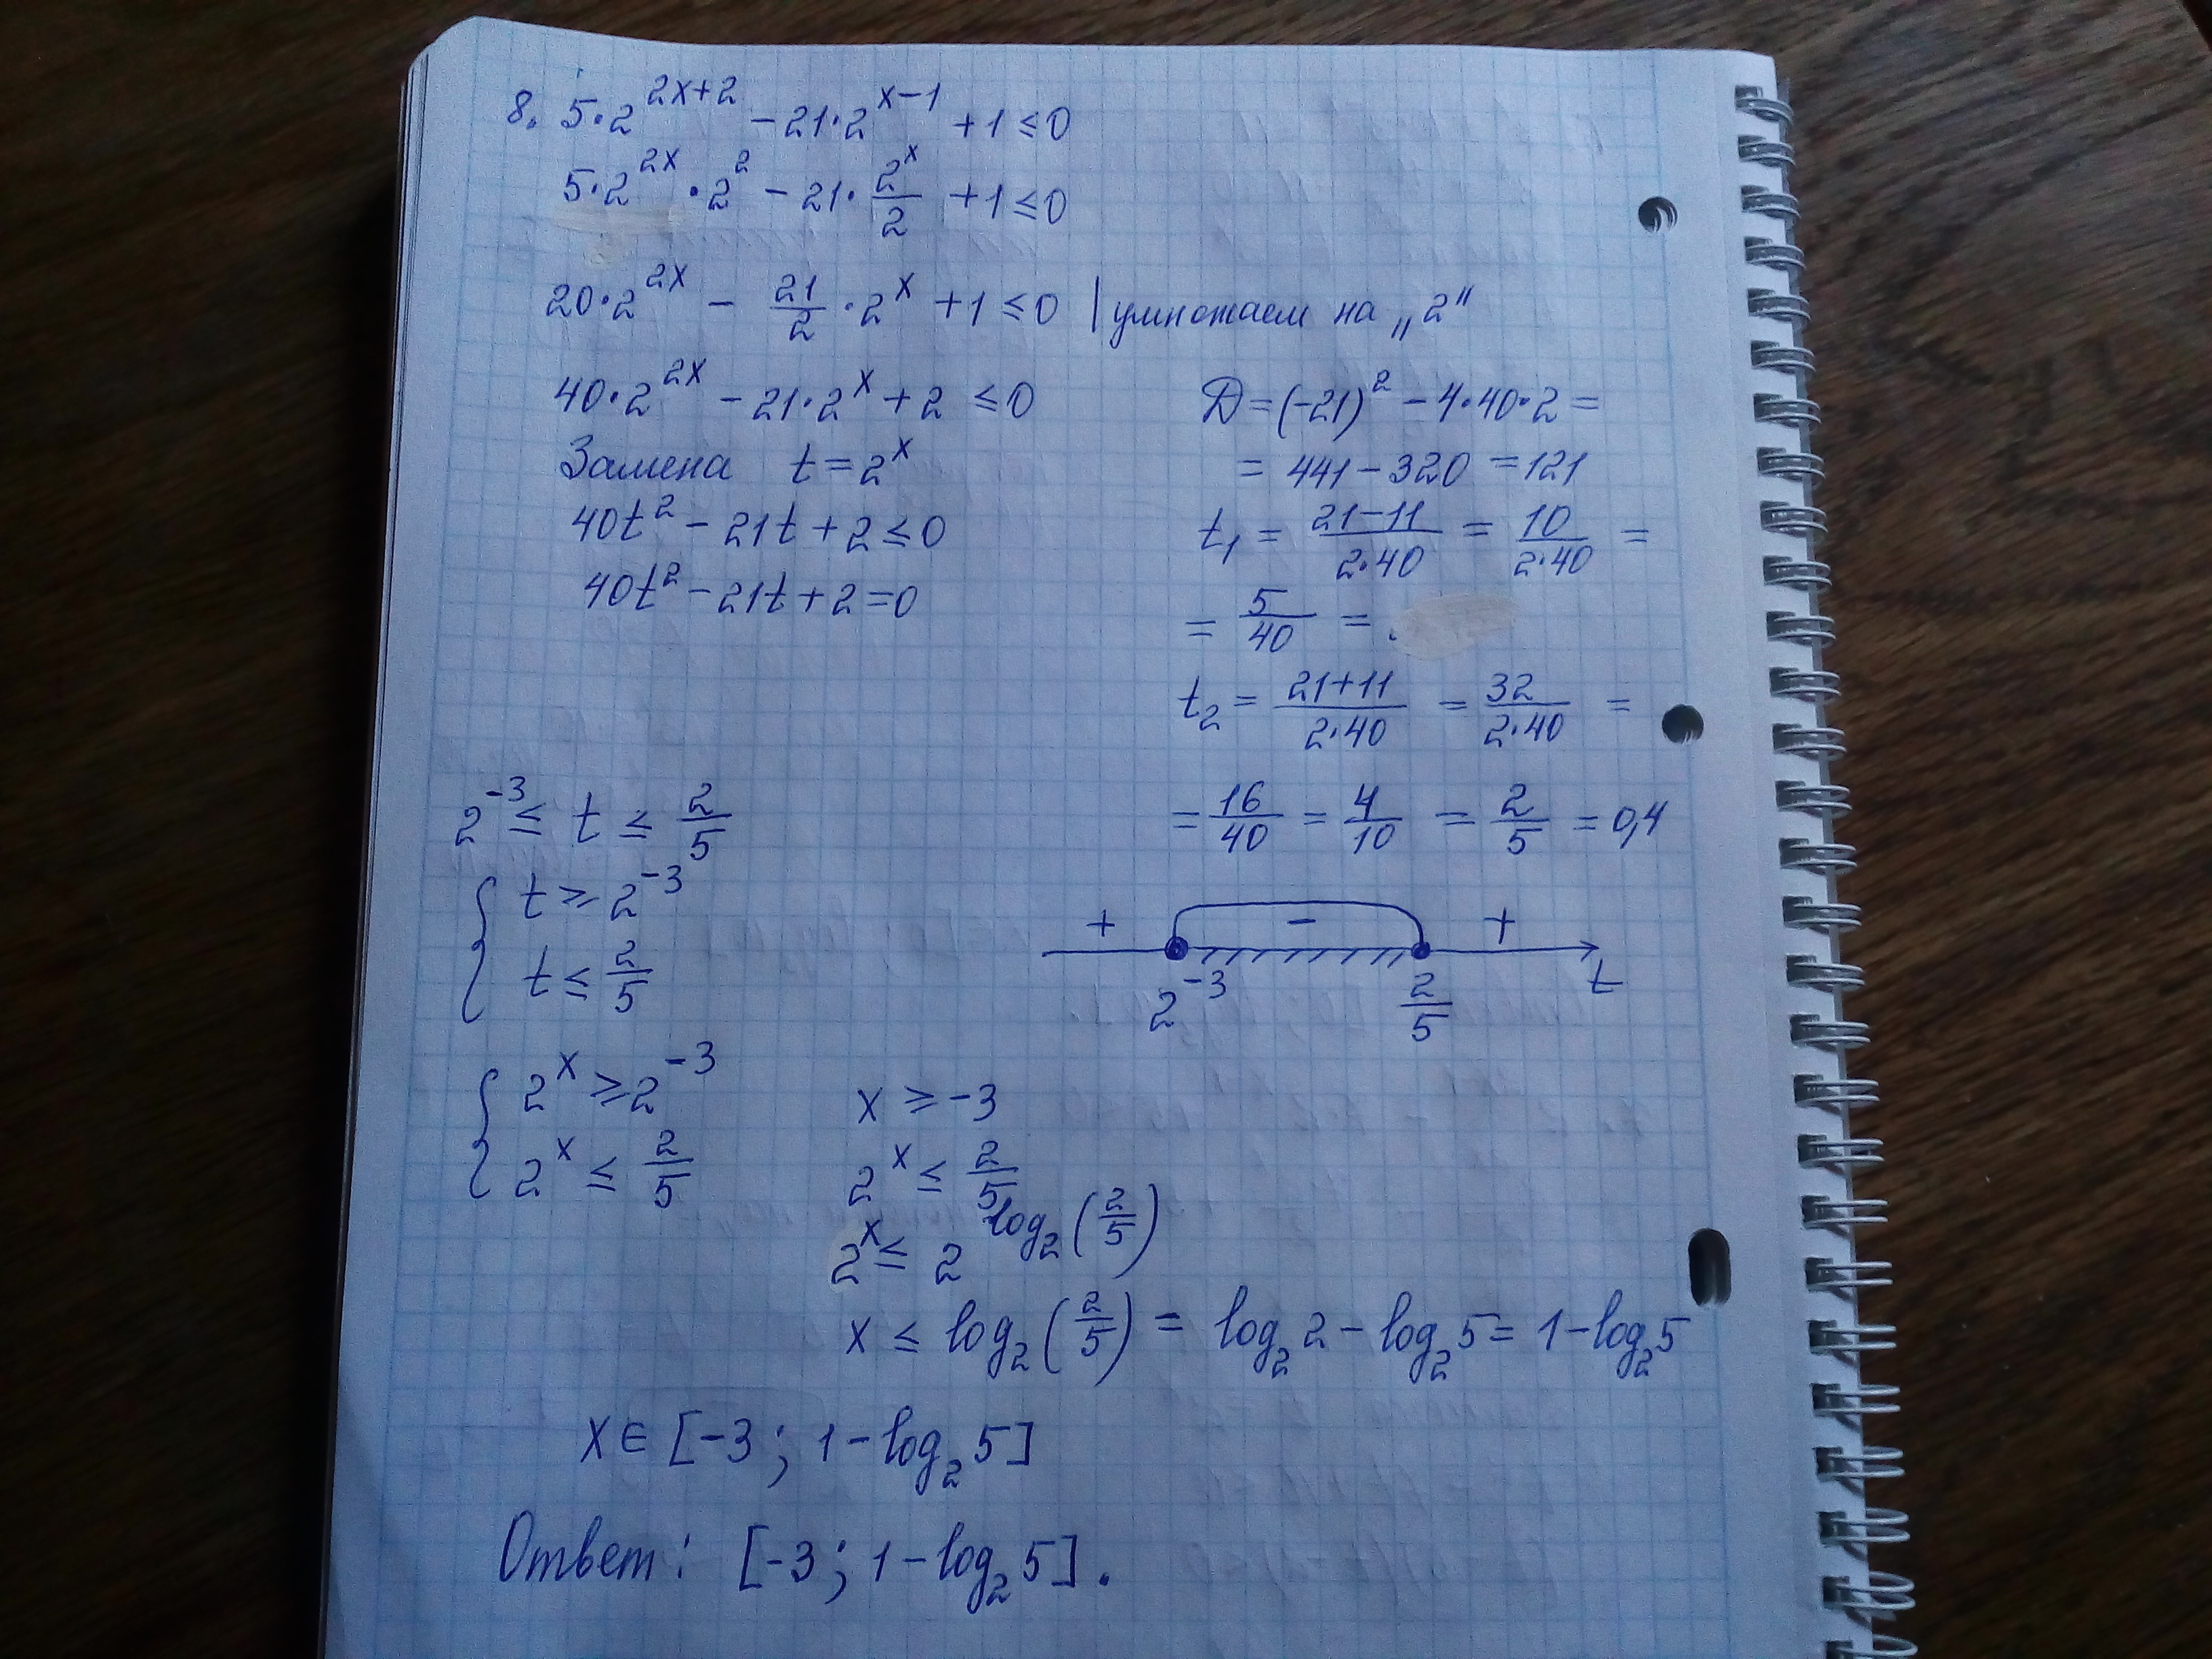 8. 5·2^(2x+2) − 21·2^(x−1) + 1 ≤ 0
5·2^(2x)·2^2 − 21·2^x/2 + 1 ≤ 0
20·2^(2x) − 21/2·2^x + 1 ≤ 0 | умножаем на „2"
40·2^(2x) − 21·2^x + 2 ≤ 0
Замена t = 2^x
40t^2 − 21t + 2 ≤ 0
40t^2 − 21t + 2 = 0
D = (−21)^2 − 4·40·2 =
= 441 − 320 = 121
t₁ = (21−11)/(2·40) = 10/(2·40) =
= 5/40 =
t₂ = (21+11)/(2·40) = 32/(2·40) =
= 16/40 = 4/10 = 2/5 = 0,4
+ − +
2^(−3) 2/5 t
2^(−3) ≤ t ≤ 2/5
{ t ≥ 2^(−3)
t ≤ 2/5
{ 2^x ≥ 2^(−3)
2^x ≤ 2/5
x ≥ −3
2^x ≤ 2/5
2^x ≤ 2^(log₂(2/5))
x ≤ log₂(2/5) = log₂2 − log₂5 = 1 − log₂5
x ∈ [−3; 1 − log₂5]
Ответ: [−3; 1 − log₂5].